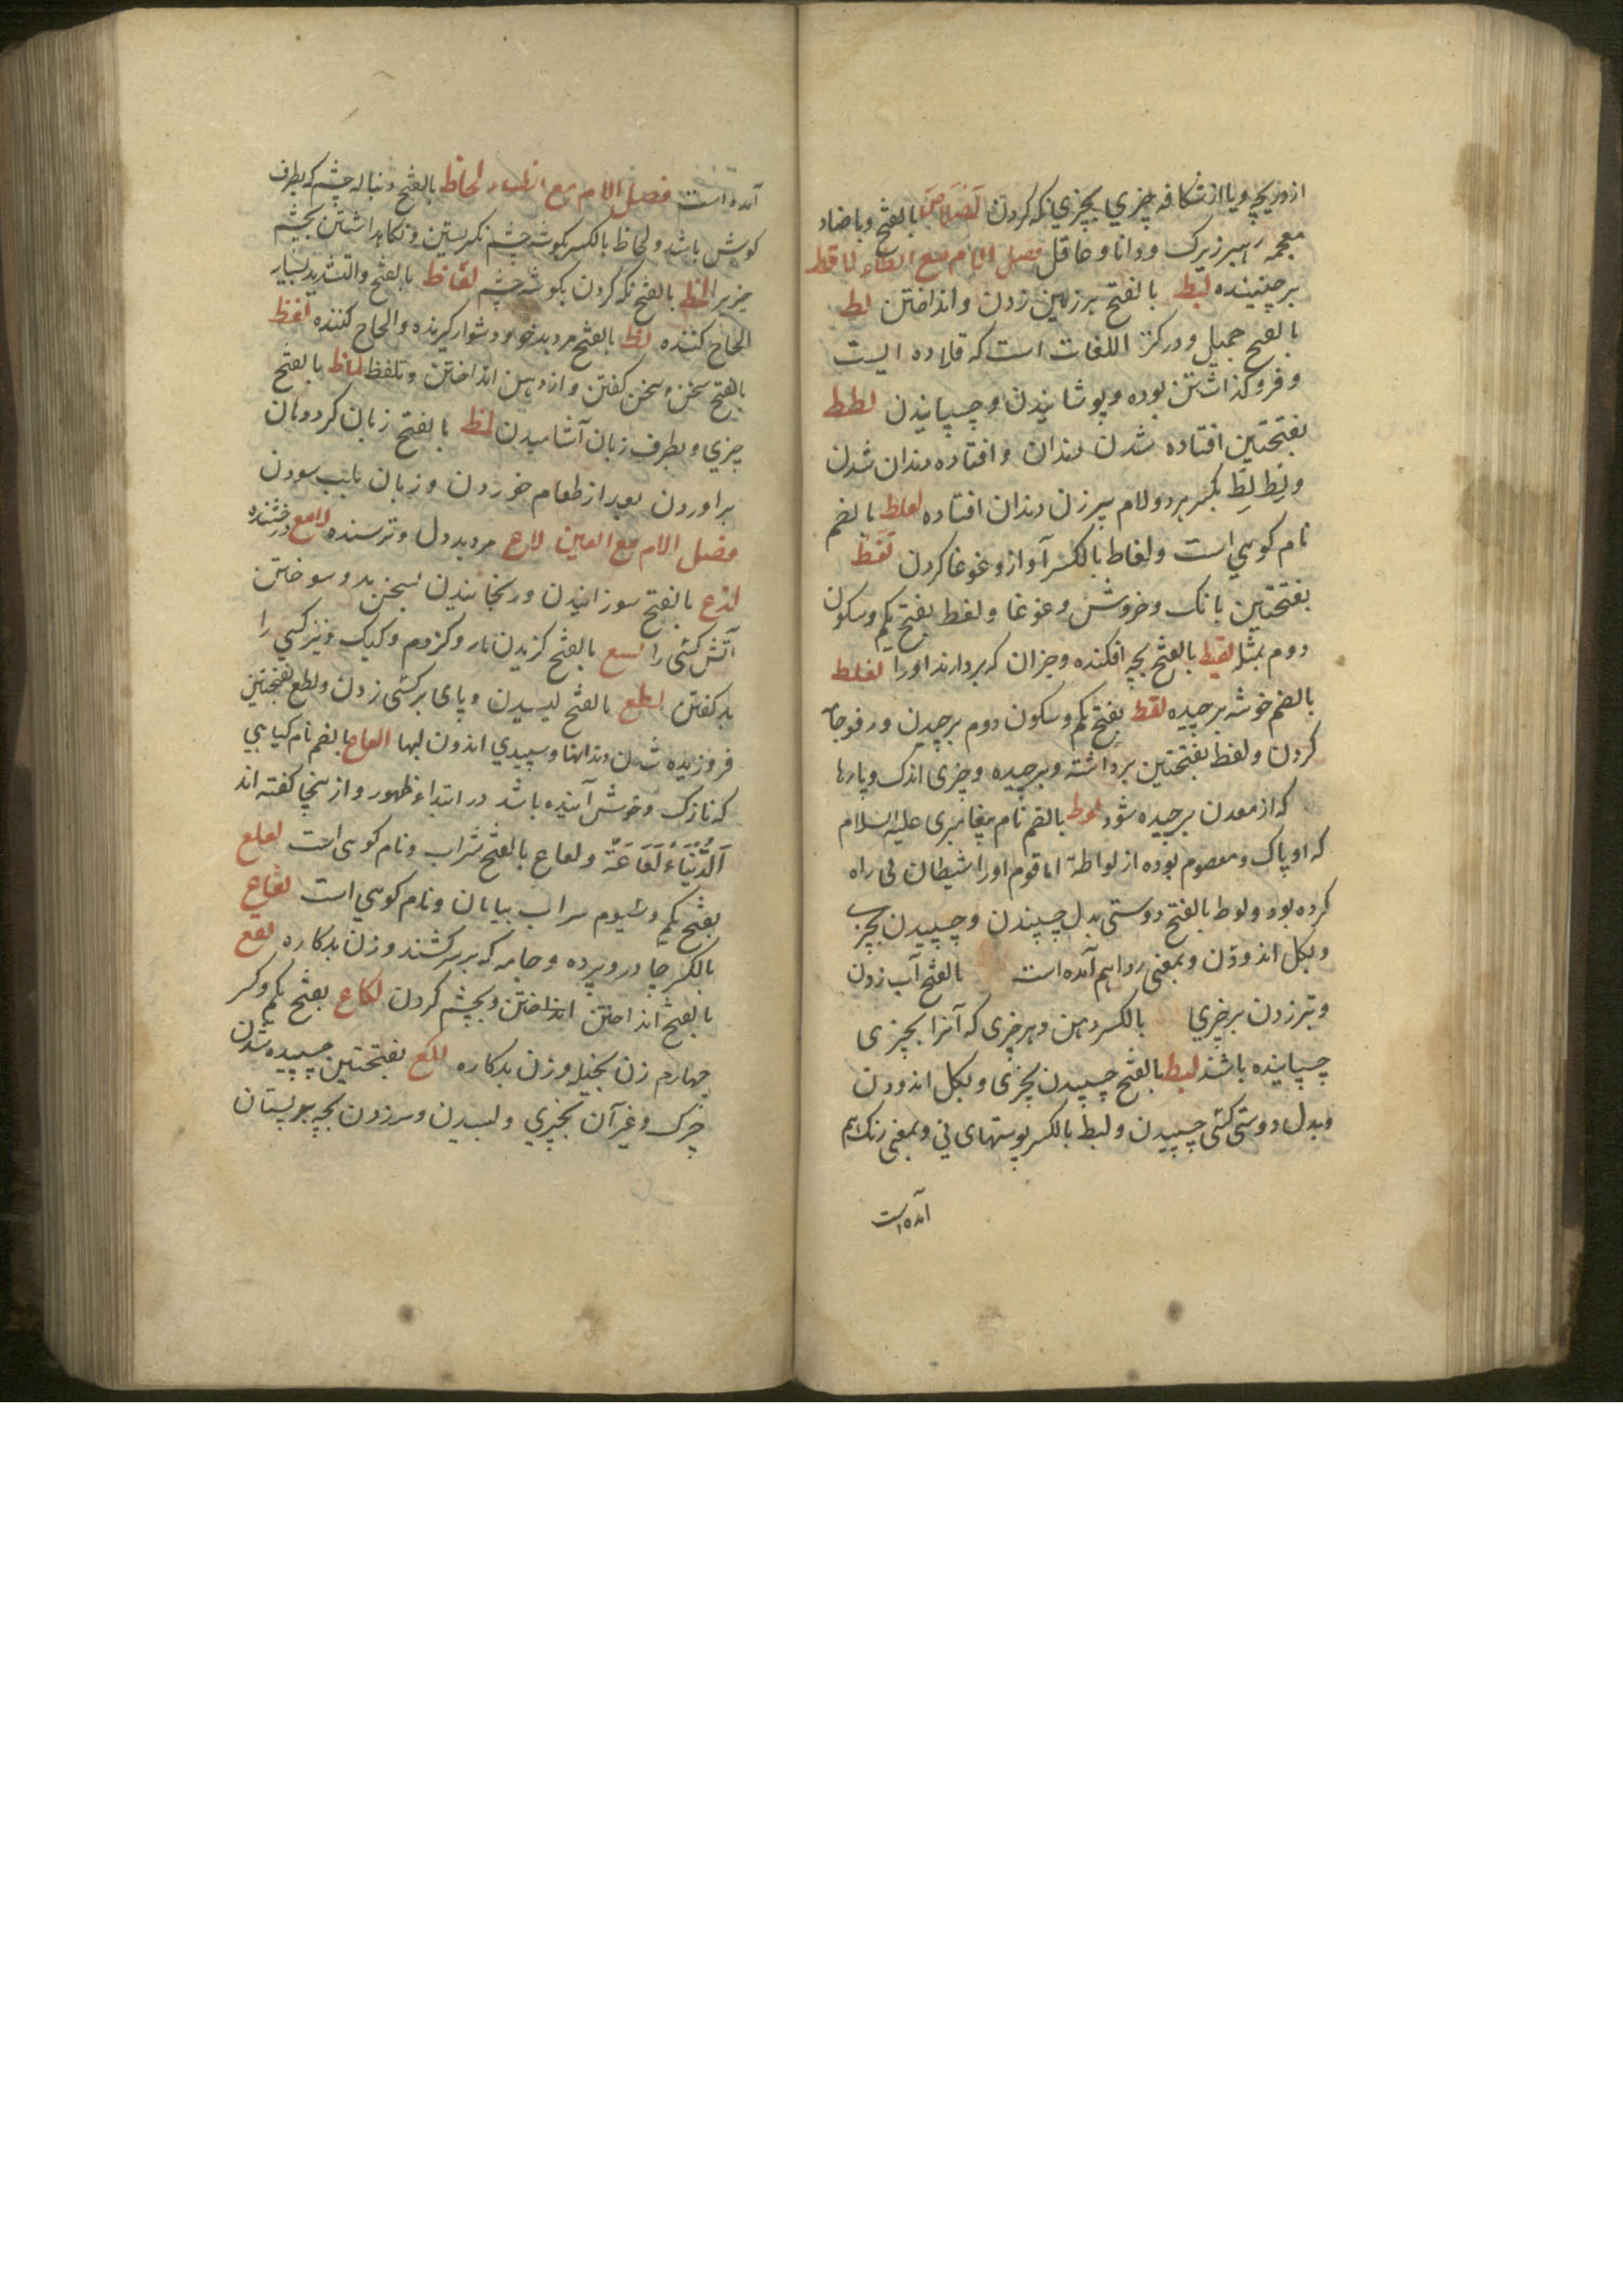 از دریچه و یا از شکافه چیزي بچیزي نکه کردن لضلاض بالفتح و با ضاد
معجمه رهبر زیرک و دانا و عاقل فصل اللام مع الطاء لاقط
برچیننده لبط بالفتح بر زمین زدن و انداختن لط
بالفتح جمیل و در کنز اللغات است که قلاده ایست
و فرو کذاشتن بوده و پوشانیدن و چسپانیدن لطط
بفتحتین افتاده شدن دندان و افتاده دندان شدن
و لِطْ لِطْ بکسر هر دو لام پیر زن دندان افتاده لعلط بالضم
نام کوهي است و لغاط بالکسر آواز و غوغا کردن لغط
بفتحتین بانک و خروش و غوغا و لغط بفتح یکم و سکون
دوم بمثله لقیط بالفتح بچه افکنده و جز آن که بردارند او را لغلط
بالضم خوشه برچیده لقط بفتح یکم و سکون دوم برچیدن و رفو جامه
کردن و لقط بفتحتین برداشته و برچیده و چیزی اندک و پارها
که از معدن برچیده شود لوط بالضم نام پیغامبری علیه السلام
که او پاک و معصوم بوده از لواطة اما قوم او را شیطان بی راه
کرده بود و لوط بالفتح دوستی بدل چسپیدن و چسپیدن بچیزی
و بکل اندودن و بمعنی ردا هم آمده است بالفتح آب زدن
و تیر زدن بر چیزي بالکسر دهن و هر چیزی که آنرا بچیزی
چسپانیده باشند لیط بالفتح چسپیدن بچیزی و بکل اندودن
و بدل دوستی کسی چسپیدن و لیط بالکسر پوستهای نی و بمعنی رنک هم
آمده است
آمده است فصل اللام مع الظاء لحاظ بالفتح دنباله چشم که بطرف
کوش باشد و لحاظ بالکسر بکوشه چشم نکریستن و نکاهداشتن بچشم
چیزیرا لحظ بالفتح نکه کردن بکوشه چشم لظاظ بالفتح والتشدید بسیار
الحاح کننده لظ بالفتح مرد بدخو و دشوار کیرنده و الحاح کننده لفظ
بالفتح سخن و سخن کفتن و از دهن انداختن و تلفظ لماظ بالفتح
چیزي و بطرف زبان آشامیدن لمظ بالفتح زبان کرد دهان
براوردن بعد از طعام خوردن و زبان بلب سودن
فصل اللام مع العین لاع مرد بددل و ترسنده لامع درخشنده
لذع بالفتح سوزانیدن و رنجانیدن بسخن بد و سوختن
آتش کسی را لسع بالفتح کزیدن مار و کژدم و کیک و نیز کسي را
بد کفتن لطع بالفتح لیسیدن و پای بر کسی زدن و لطع بفتحتین
فرو ریزیده شدن دندانها و سپیدي اندرون لبها العاع بالضم نام کیاهي
که نازک و خوش آینده باشد در ابتداء ظهور و از ینجا کفته اند
اَلدُّنْیَاءُ لَعَاعَةٌ و لعاع بالفتح شراب و نام کوهی است لعلع
بفتح یکم و سیوم سراب بیابان و نام کوهي است لفاع
بالکسر چادر و پرده و جامه که بر سر کشند و زن بدکاره لقع
بالفتح انداختن انداختن و بچشم کردن لکاع بفتح یکم و کسر
چهارم زن بخیله و زن بدکاره لکع بفتحتین چسپیده شدن
چرک و غیر آن بچیزي و لیسیدن و سر زدن بچه بر پستان